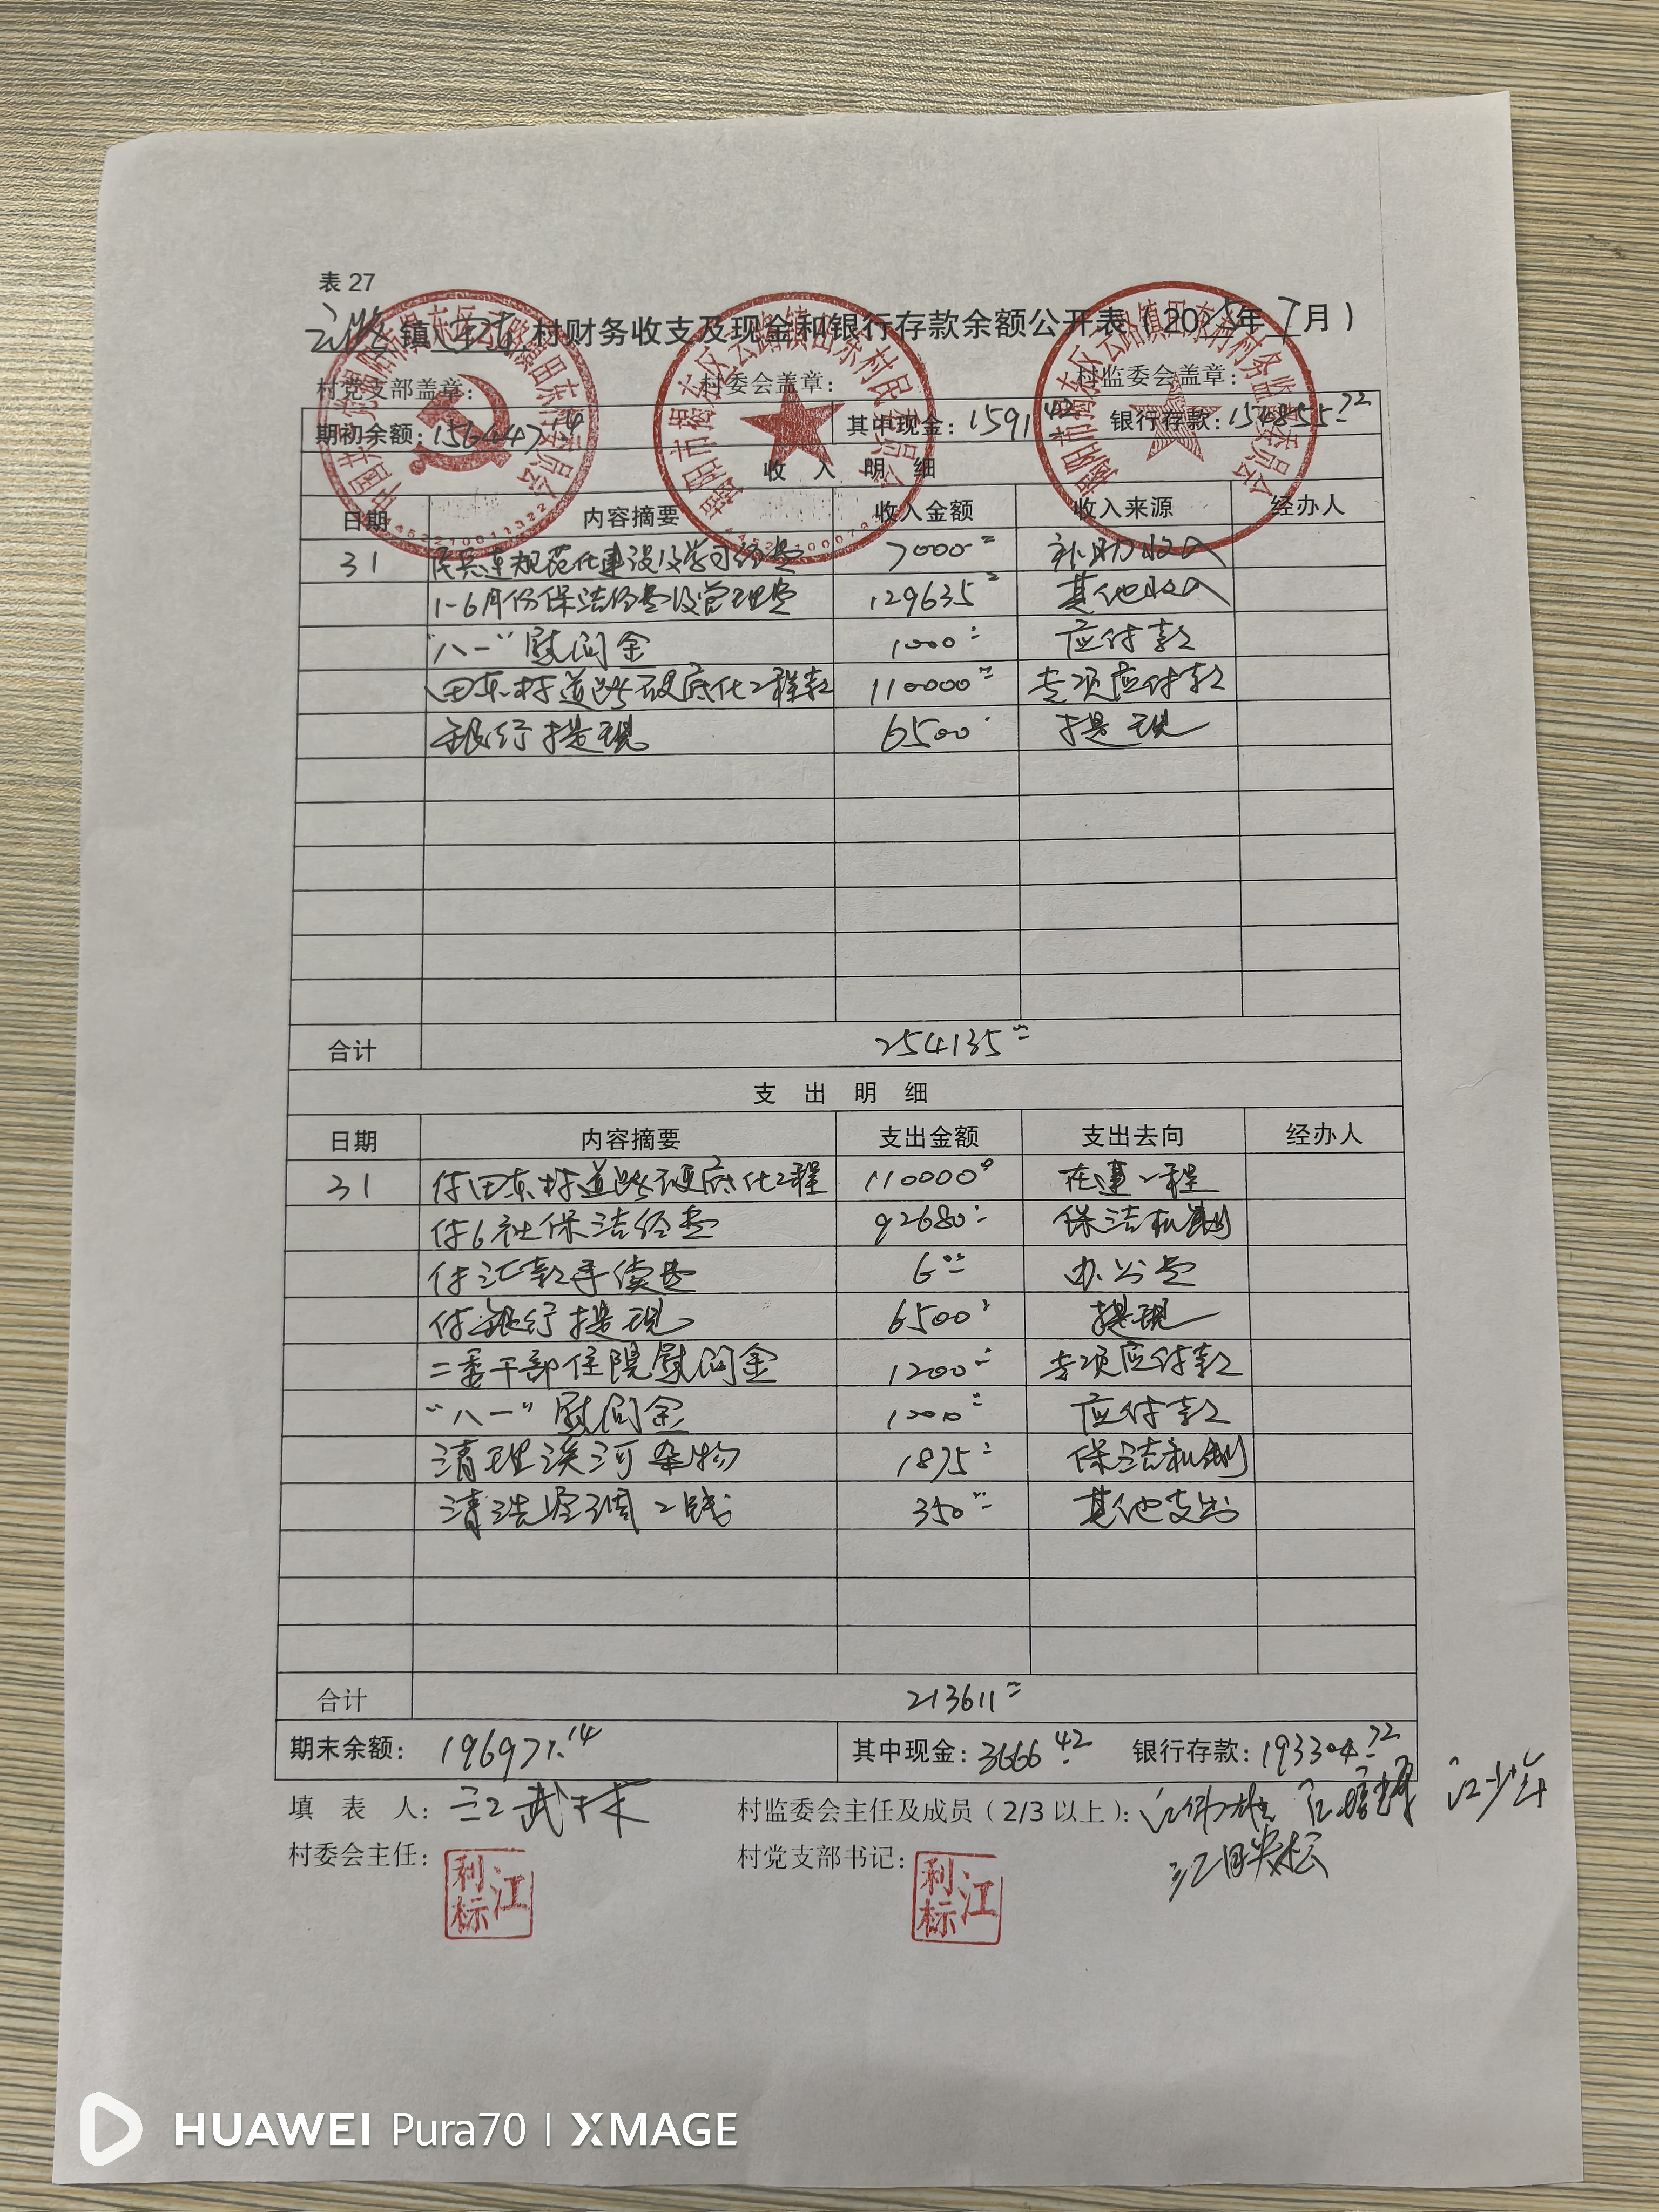 表 27
云路镇田东村财务收支及现金和银行存款余额公开表（2025年7月）
村党支部盖章： 村委会盖章： 村监委会盖章：
期初余额：156447.14 其中现金：1591.42 银行存款：154855.72
收 入 明 细
日期 内容摘要 收入金额 收入来源 经办人
31 民兵连规范化建设及学习经费 7000 补助收入
1-6月份保洁经费及管理费 129635 其他收入
“八一”慰问金 1000 应付款
田东村道路硬底化工程款 110000 专项应付款
银行提现 6500 提现
合计 254135
支 出 明 细
日期 内容摘要 支出金额 支出去向 经办人
31 付田东村道路硬底化工程 110000 在建工程
付6社保洁经费 92680 保洁机制
付汇款手续费 6 办公费
付银行提现 6500 提现
二委干部住院慰问金 1200 专项应付款
“八一”慰问金 1000 应付款
清理溪河杂物 1875 保洁机制
清洗空调工钱 350 其他支出
合计 213611
期末余额：196971.14 其中现金：3666.42 银行存款：193304.72
填 表 人：江武林 村监委会主任及成员（2/3 以上）： 江少年
村委会主任： 江利标 村党支部书记： 江利标
HUAWEI Pura70 | XMAGE